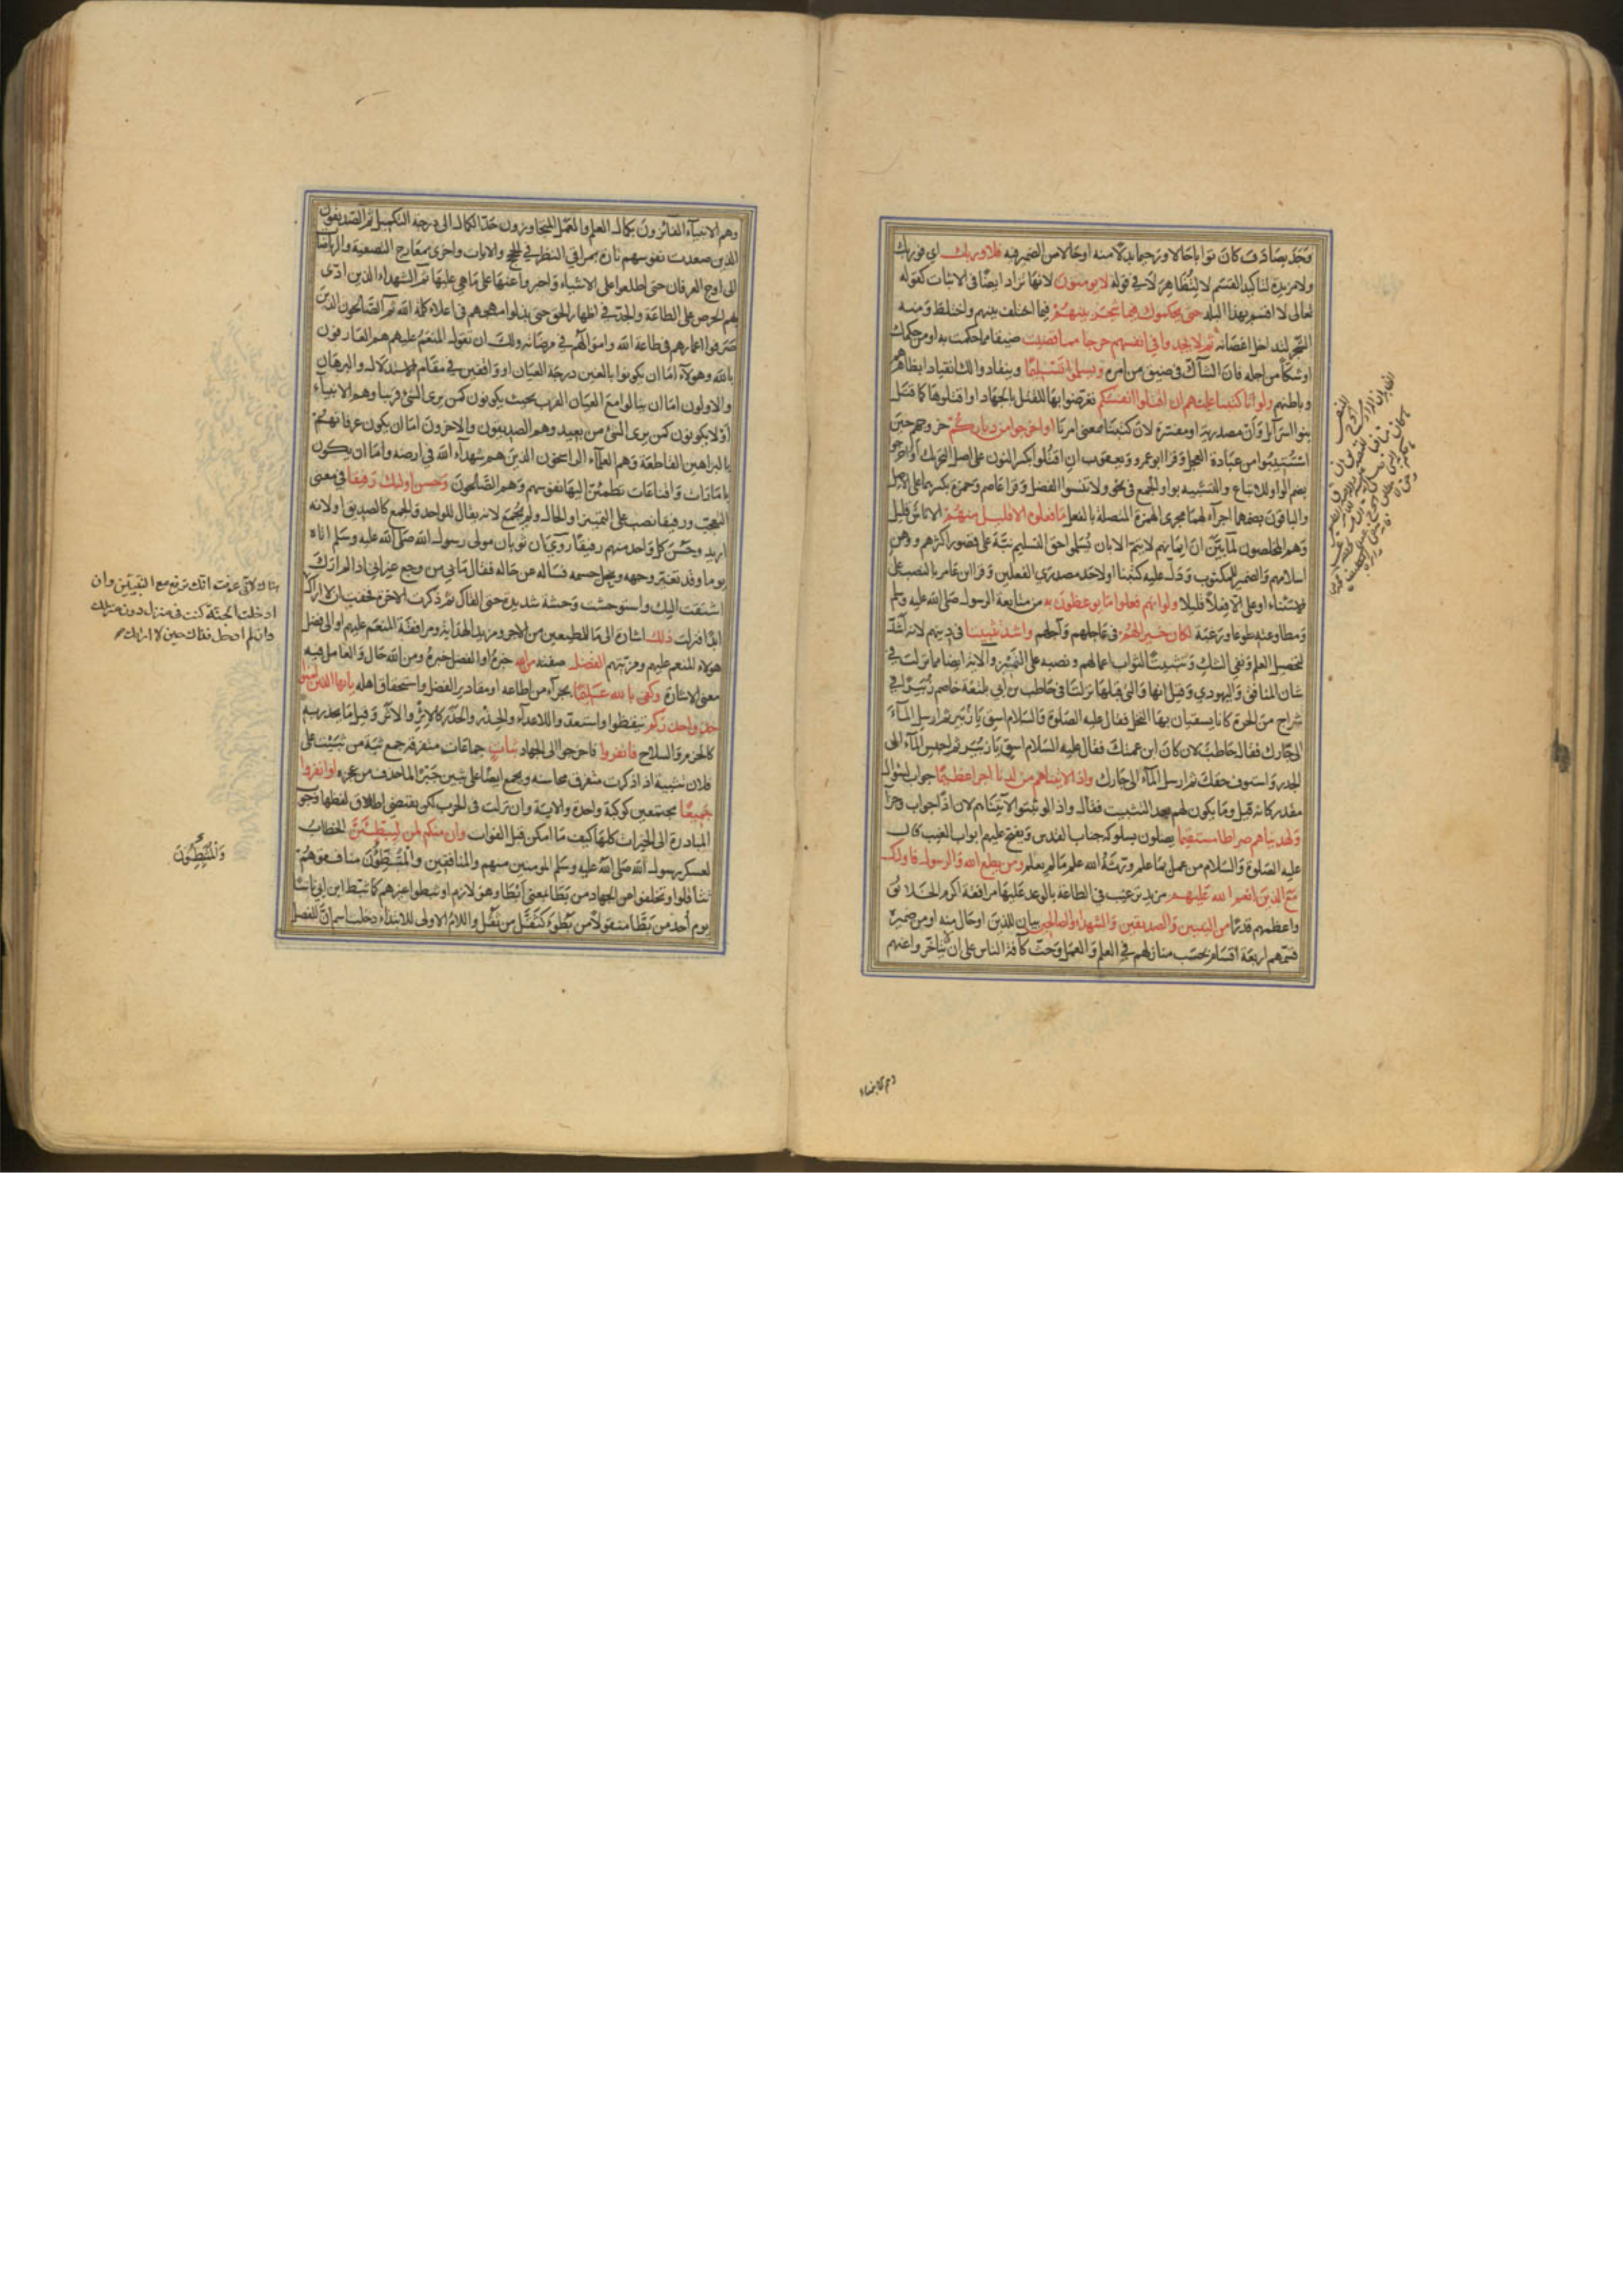 وجد بصادف كان توابا حالا ورحيما بدلا منه او حالا من الضمير فيه فلا وربك اي فوربك
ولا مزيدة لتاكيد القسم لا لتظاهر لا في قوله لا يومنون لانها تزاد ايضا في الاثبات كقوله
تعالى لا اقسم بهذا البلد حتى يحكموك فيما شجر بينهم فيما اختلف بينهم واختلط ومنه
الشجر لتداخل اغصانه ثم لا يجدوا في انفسهم حرجا مما قضيت ضيقا مما حكمت به او من حكمك
او شكا من اجله فان الشاك في ضيق من امره ويسلموا تسليما وينقادوا لك انقيادا بظاهرهم
وباطنهم ولو انا كتبنا عليهم ان اقتلوا انفسكم تعرضوا بها للقتل بالجهاد او اقتلوها كما قتل
بنوا اسرآيل وان مصدرية او مفسرة لان كتبنا بمعنى امرنا او اخرجوا من دياركم خروجهم حين
استتيبوا من عبادة العجل وقرا ابو عمرو ويعقوب ان اقتلوا بكسر النون على اصل التحريك او اخرجوا
بضم الواو للاتباع والتشبيه بواو الجمع في نحو ولا تنسوا الفضل وقرا عاصم وحمزة بكسرهما على الاصل
والباقون بضمهما اجرآء لهما مجرى الهمزة المتصلة بالفعل ما فعلوه الا قليل منهم الا ناس قليل
وهم المخلصون لما بين ان ايمانهم لا يتم الا بان يسلموا حق التسليم نبه على قصور اكثرهم ووهن
اسلامهم والضمير للمكتوب ودل عليه كتبنا او لاحد مصدري الفعلين وقرا ابن عامر بالنصب على
الاستثناء او على الا فعلا قليلا ولو انهم فعلوا ما يوعظون به من متابعة الرسول صلى الله عليه وسلم
ومطاوعته طوعا ورغبة لكان خيرا لهم في عاجلهم وآجلهم واشد تثبيتا في دينهم لانه اشد
لتحصيل العلم ونفي الشك وتثبيتا لثواب اعمالهم ونصبه على التمييز والآية ايضا مما نزلت في
شان المنافق واليهودي وقيل انها والتي قبلها نزلتا في حاطب بن ابي بلتعة خاصم زبيرا في
شراج من الحرة كانا يسقيان بها النخل فقال عليه الصلوة والسلام اسق يا زبير ثم ارسل المآء
الى جارك فقال حاطب لان كان ابن عمتك فقال عليه السلام اسق يا زبير ثم احبس المآء الى
الجدر واستوف حقك ثم ارسل المآء الى جارك واذا لاتيناهم من لدنا اجرا عظيما جواب لسؤال
مقدر كانه قيل وما يكون لهم بعد التثبيت فقال واذا لو تثبتوا لآتيناهم لان اذا جواب وجزا
ولهديناهم صراطا مستقيما يصلون بسلوكه جناب القدس ويفتح عليهم ابواب الغيب قال
عليه الصلوة والسلام من عمل بما علم ورثه الله علم ما لم يعلم ومن يطع الله والرسول فاولئك
مع الذين انعم الله عليهم مزيد ترغيب في الطاعة بالوعد عليها مرافقة اكرم الخلائق
واعظمهم قدرا من النبيين والصديقين والشهداء والصالحين بيان للذين او حال منه او من ضميره
قسمهم اربعة اقسام بحسب منازلهم في العلم والعمل وحث كآفة الناس على ان لا يتاخروا عنهم
وهم الانبيآء
وهم الانبيآء الفآئزون بكمال العلم والعمل المتجاوزون حد الكمال الى درجة التكميل ثم الصديقون
الذين صعدت نفوسهم تارة بمراقي النظر في الحجج والايات واخرى بمعارج التصفية والرياضات
الى اوج العرفان حتى اطلعوا على الاشياء واخبروا عنها على ما هي عليها ثم الشهداء الذين ادى
بهم الحرص على الطاعة والجد في اظهار الحق حتى بذلوا مهجهم في اعلاء كلمة الله ثم الصالحون الذين
صرفوا اعمارهم في طاعة الله واموالهم في مرضاته ولك ان تقول المنعم عليهم هم العارفون
بالله وهولآء اما ان يكونوا بالغين درجة العيان او واقفين في مقام الاستدلال والبرهان
والاولون اما ان ينالوا مع العيان القرب بحيث يكونون كمن يرى الشئ قريبا وهم الانبيآء
او لا يكونون كمن يرى الشئ من بعيد وهم الصديقون والاخرون اما ان يكون عرفانهم
بالبراهين القاطعة وهم العلمآء الراسخون الذين هم شهدآء الله في ارضه واما ان يكون
بامارات واقناعات تطمئن اليها نفوسهم وهم الصالحون وحسن اولئك رفيقا في معنى
التعجب ورفيقا نصب على التمييز او الحال ولم يجمع لانه يقال للواحد والجمع كالصديق او لانه
اريد وحسن كل واحد منهم رفيقا روي ان ثوبان مولى رسول الله صلى الله عليه وسلم اتاه
يوما وقد تغير وجهه ونحل جسمه فساله عن حاله فقال ما بي من وجع غير اني اذا لم ارك
اشتقت اليك واستوحشت وحشة شديدة حتى القاك ثم ذكرت الاخرة فخفت ان لا اراك
هناك لاني عرفت انك ترفع مع النبيين وان
ادخلت الجنة كنت في منزل دون منزلك
وان لم ادخل فذاك حين لا اراك
ابدا فنزلت ذلك اشارة الى ما للمطيعين من الاجر ومزيد الهداية ومرافقة المنعم عليهم او الى فضل
هولاء المنعم عليهم ومزيتهم الفضل صفته من الله خبره او الفضل خبره ومن الله حال والعامل فيه
معنى الاشارة وكفى بالله عليما بجزآء من اطاعه او مقادير الفضل واستحقاق اهله يا ايها الذين امنوا
خذوا حذركم تيقظوا واستعدوا للاعدآء والحذر والحذر كالاثر والاثر وقيل ما يحذر به
كالحزم والسلاح فانفروا فاخرجوا الى الجهاد ثبات جماعات متفرقة جمع ثبة من ثبيت على
فلان تثبية اذا ذكرت متفرق محاسنه ويجمع ايضا على ثبين جبرا لما حذف من عجزه او انفروا
جميعا مجتمعين كوكبة واحدة والاية وان نزلت في الحرب لكن يقتضي اطلاق لفظها وجوب
المبادرة الى الخيرات كلها كيف ما امكن قبل الفوات وان منكم لمن ليبطئن الخطاب
لعسكر رسول الله صلى الله عليه وسلم المومنين منهم والمنافقين والمبطؤن منافقوهم
والمبطئون
تثاقلوا وتخلفوا عن الجهاد من بطا بمعنى ابطا وهو لازم او ثبطوا غيرهم كما ثبط ابن ابي ناسا
يوم احد من بطا منقولا من بطؤ كثقل من ثقل واللام الاولى للابتداء دخلت اسم ان للفصل